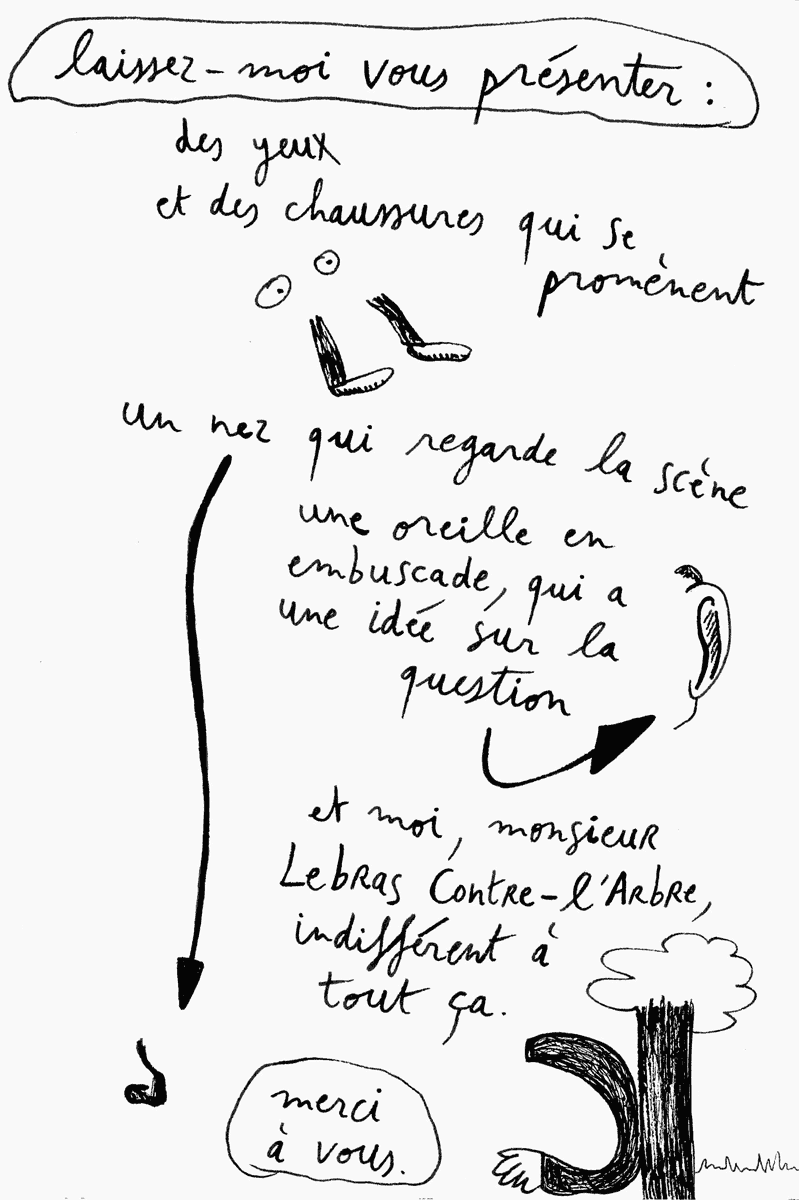 laissez-moi vous présenter :
des yeux
et des chaussures qui se
promènent
un nez qui regarde la scène
une oreille en
embuscade, qui a
une idée sur la
question
et moi, monsieur
Lebras Contre-l'Arbre,
indifférent à
tout ça.
merci
à vous.